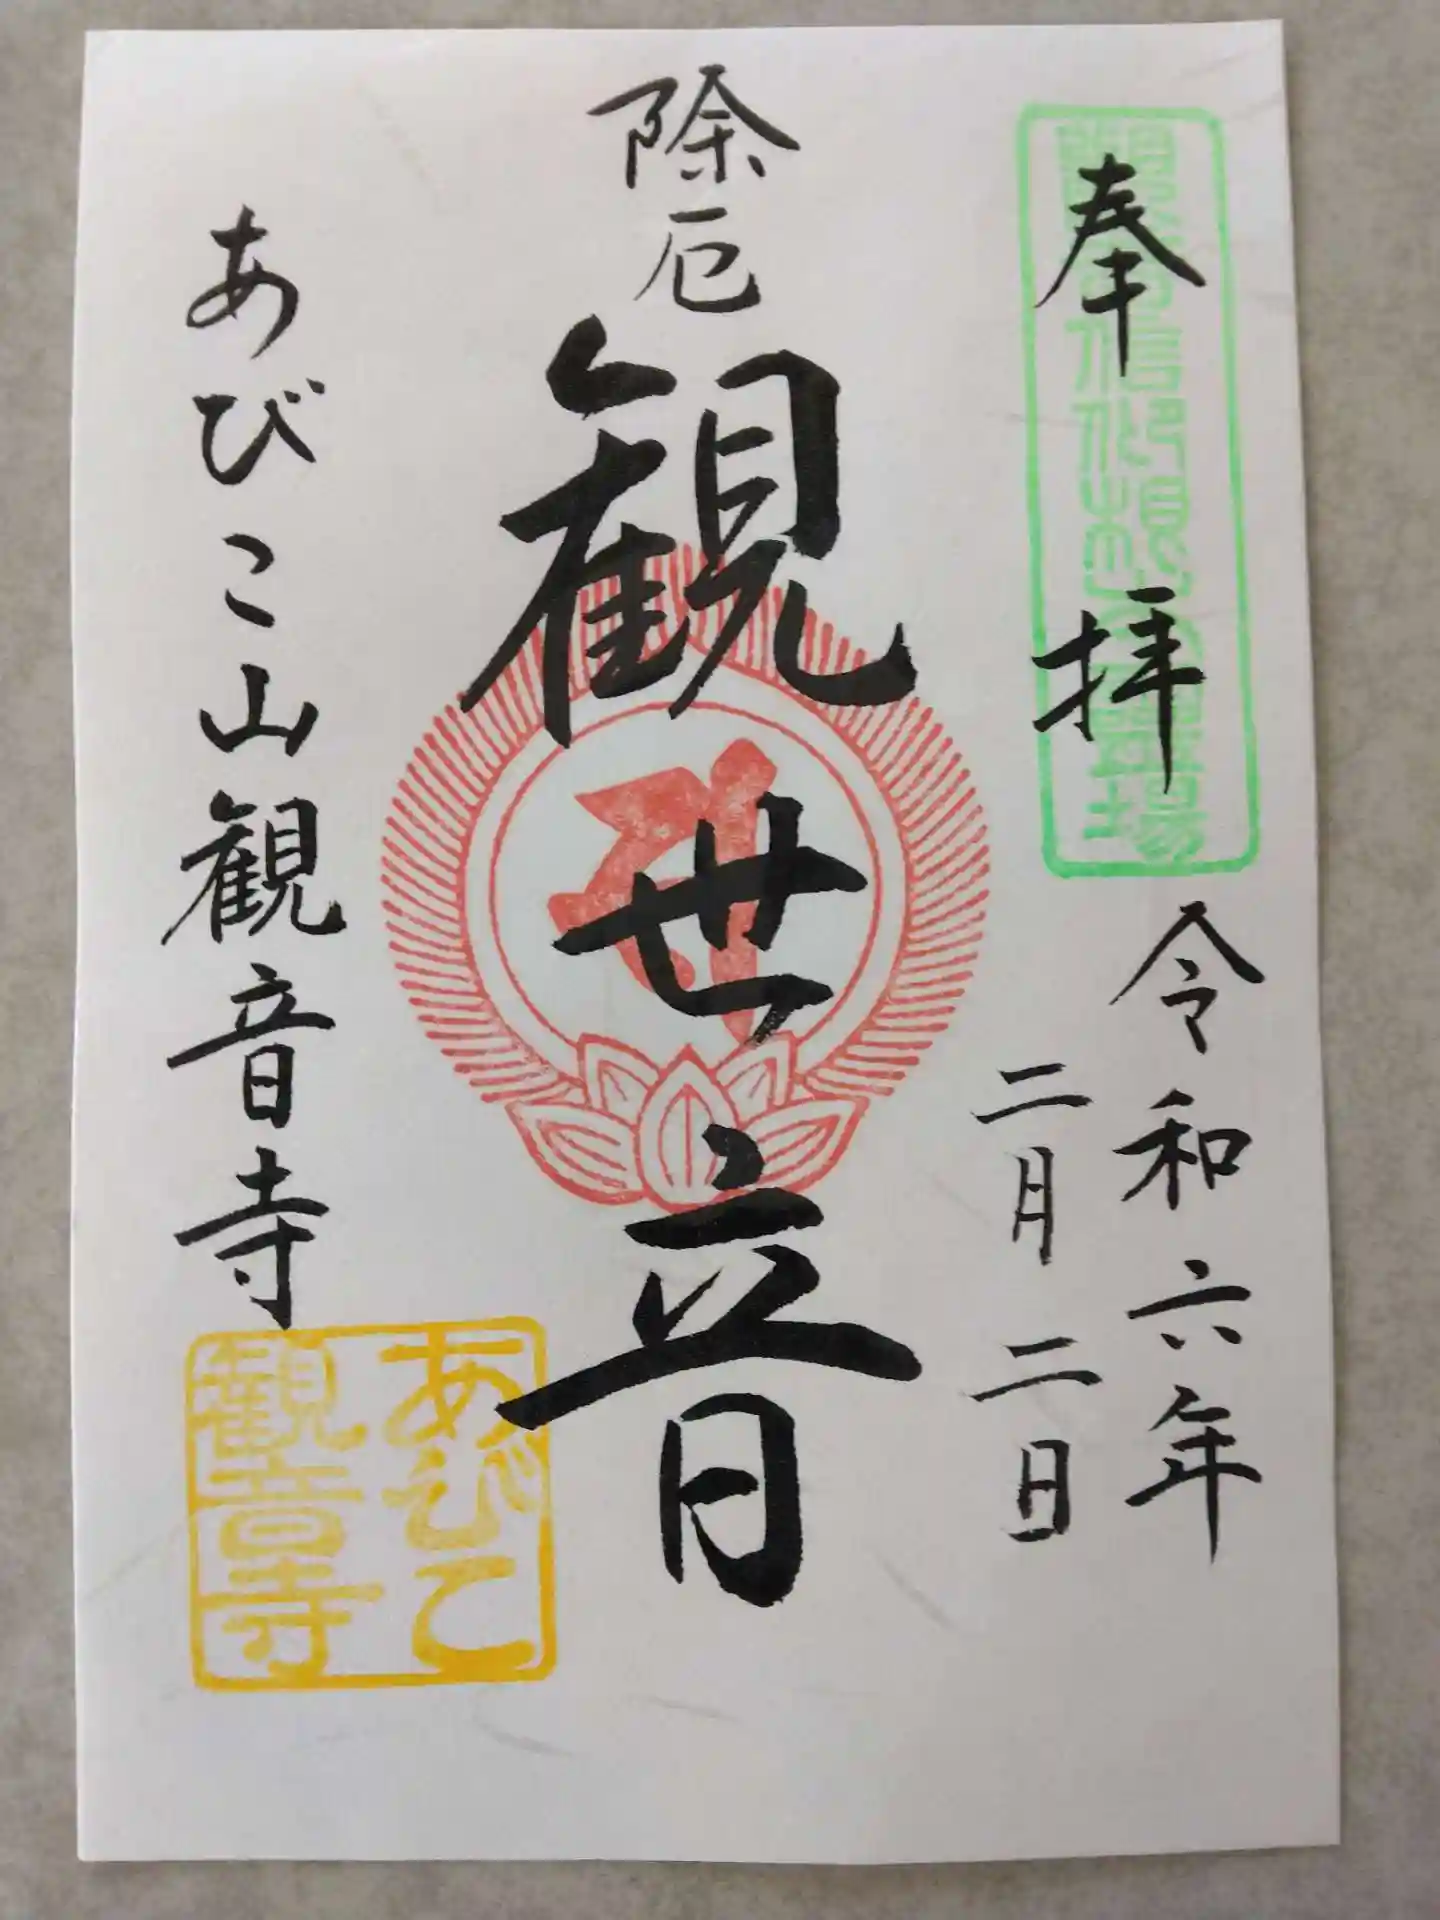 奉拝
令和六年
二月二日
除厄
観世音
あびこ山観音寺
あびこ
観音寺